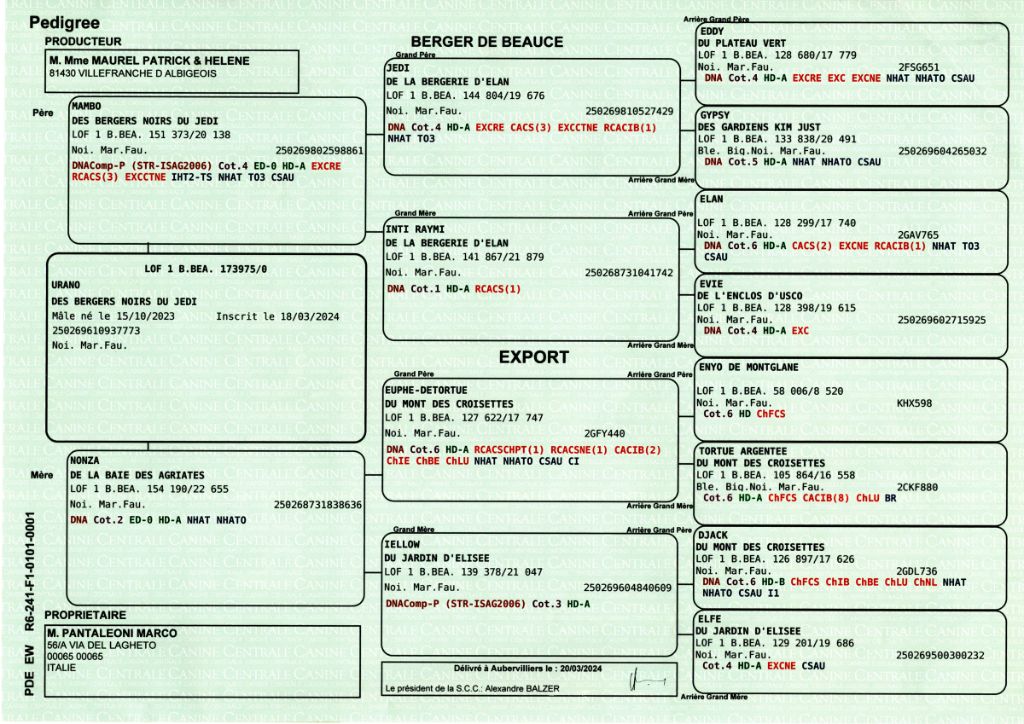 Pedigree
PRODUCTEUR
M. Mme MAUREL PATRICK & HELENE
81430 VILLEFRANCHE D ALBIGEOIS
Père
MAMBO
DES BERGERS NOIRS DU JEDI
LOF 1 B.BEA. 151 373/20 138
Noi. Mar.Fau. 250269802598861
DNAComp-P (STR-ISAG2006) Cot.4 ED-0 HD-A EXCRE
RCACS(3) EXCCTNE IHT2-TS NHAT TO3 CSAU
LOF 1 B.BEA. 173975/0
URANO
DES BERGERS NOIRS DU JEDI
Mâle né le 15/10/2023 Inscrit le 18/03/2024
250269610937773
Noi. Mar.Fau.
Mère
NONZA
DE LA BAIE DES AGRIATES
LOF 1 B.BEA. 154 190/22 655
Noi. Mar.Fau. 250268731838636
DNA Cot.2 ED-0 HD-A NHAT NHATO
PROPRIETAIRE
M. PANTALEONI MARCO
56/A VIA DEL LAGHETO
00065 00065
ITALIE
PDE EW R6-241-F1-0101-0001
BERGER DE BEAUCE
Grand Père
JEDI
DE LA BERGERIE D'ELAN
LOF 1 B.BEA. 144 804/19 676
Noi. Mar.Fau. 250269810527429
DNA Cot.4 HD-A EXCRE CACS(3) EXCCTNE RCACIB(1)
NHAT TO3
Grand Mère
INTI RAYMI
DE LA BERGERIE D'ELAN
LOF 1 B.BEA. 141 867/21 879
Noi. Mar.Fau. 250268731041742
DNA Cot.1 HD-A RCACS(1)
EXPORT
Grand Père
EUPHE-DETORTUE
DU MONT DES CROISETTES
LOF 1 B.BEA. 127 622/17 747
Noi. Mar.Fau. 2GFY440
DNA Cot.6 HD-A RCACSCHPT(1) RCACSNE(1) CACIB(2)
ChIE ChBE ChLU NHAT NHATO CSAU CI
Grand Mère
IELLOW
DU JARDIN D'ELISEE
LOF 1 B.BEA. 139 378/21 047
Noi. Mar.Fau. 250269604840609
DNAComp-P (STR-ISAG2006) Cot.3 HD-A
Délivré à Aubervilliers le : 20/03/2024
Le président de la S.C.C.: Alexandre BALZER
Arrière Grand Père
EDDY
DU PLATEAU VERT
LOF 1 B.BEA. 128 680/17 779
Noi. Mar.Fau. 2FSG651
DNA Cot.4 HD-A EXCRE EXC EXCNE NHAT NHATO CSAU
GYPSY
DES GARDIENS KIM JUST
LOF 1 B.BEA. 133 838/20 491
Ble. Biq.Noi. Mar.Fau. 250269604265032
DNA Cot.5 HD-A NHAT NHATO CSAU
Arrière Grand Mère
Arrière Grand Père
ELAN
LOF 1 B.BEA. 128 299/17 740
Noi. Mar.Fau. 2GAV765
DNA Cot.6 HD-A CACS(2) EXCNE RCACIB(1) NHAT TO3
CSAU
EVIE
DE L'ENCLOS D'USCO
LOF 1 B.BEA. 128 398/19 615
Noi. Mar.Fau. 250269602715925
DNA Cot.4 HD-A EXC
Arrière Grand Mère
Arrière Grand Père
ENYO DE MONTGLANE
LOF 1 B.BEA. 58 006/8 520
Noi. Mar.Fau. KHX598
Cot.6 HD ChFCS
TORTUE ARGENTEE
DU MONT DES CROISETTES
LOF 1 B.BEA. 105 864/16 558
Ble. Biq.Noi. Mar.Fau. 2CKF880
Cot.6 HD-A ChFCS CACIB(8) ChLU BR
Arrière Grand Mère
Arrière Grand Père
DJACK
DU MONT DES CROISETTES
LOF 1 B.BEA. 126 897/17 626
Noi. Mar.Fau. 2GDL736
DNA Cot.6 HD-B ChFCS ChIB ChBE ChLU ChNL NHAT
NHATO CSAU I1
ELFE
DU JARDIN D'ELISEE
LOF 1 B.BEA. 129 201/19 686
Noi. Mar.Fau. 250269500300232
Cot.4 HD-A EXCNE CSAU
Arrière Grand Mère